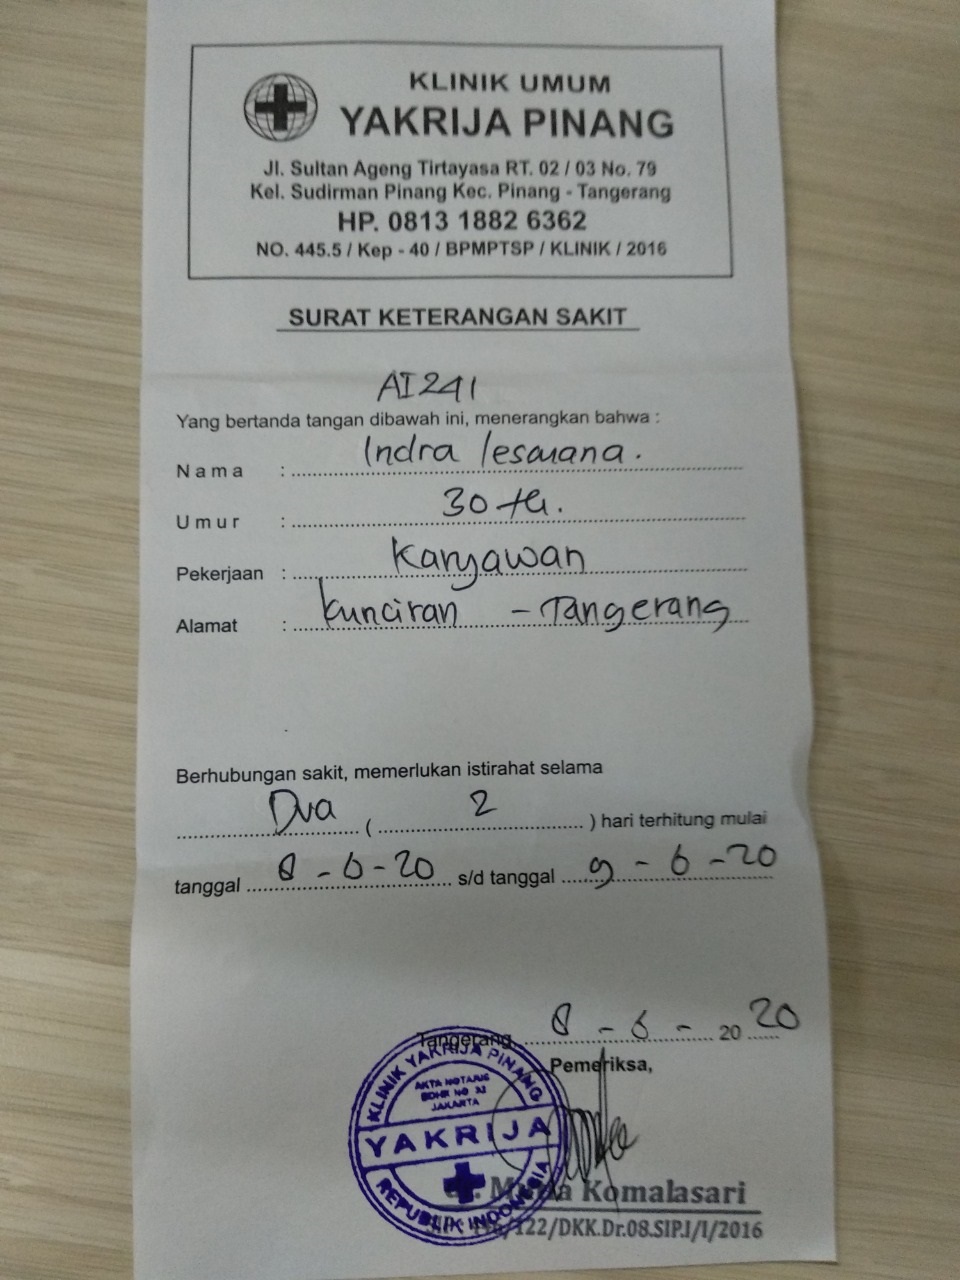 KLINIK UMUM
YAKRIJA PINANG
Jl. Sultan Ageng Tirtayasa RT. 02 / 03 No. 79
Kel. Sudirman Pinang Kec. Pinang - Tangerang
HP. 0813 1882 6362
NO. 445.5 / Kep - 40 / BPMPTSP / KLINIK / 2016
SURAT KETERANGAN SAKIT
AI241
Yang bertanda tangan dibawah ini, menerangkan bahwa :
Nama : Indra lesmana.
Umur : 30 th.
Pekerjaan : Karyawan
Alamat : kunciran - Tangerang
Berhubungan sakit, memerlukan istirahat selama
Dua ( 2 ) hari terhitung mulai
tanggal 8 - 6 - 20 s/d tanggal 9 - 6 - 20
Tangerang, 8 - 6 - 20 20
Pemeriksa,
KLINIK YAKRIJA PINANG
AKTA NOTARIS
JAKARTA
YAKRIJA
REPUBLIK INDONESIA
Komalasari
/122/DKK.Dr.08.SIP.I/I/2016